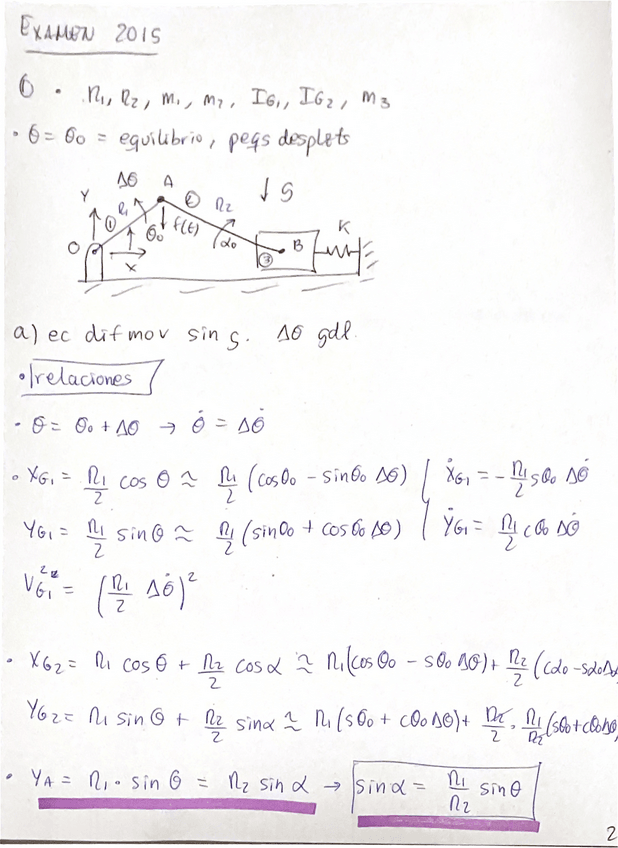 EXAMEN 2015
① • R₁, R₂, m₁, m₂, IG₁, IG₂, m₃
• θ = θ₀ = equilibrio, peqs desplzts
Δθ A
Y R₁ ② R₂ ↓ g
① θ₀ f(t) K
O α₀ B
X ③
a) ec dif mov sin g. Δθ gdl.
• relaciones
• θ = θ₀ + Δθ → θ̇ = Δθ̇
• XG₁ = R₁/2 cos θ ≈ R₁/2 (cosθ₀ - sinθ₀ Δθ) / ẊG₁ = - R₁/2 sθ₀ Δθ̇
YG₁ = R₁/2 sin θ ≈ R₁/2 (sinθ₀ + cosθ₀ Δθ) / ẎG₁ = R₁/2 cθ₀ Δθ̇
VG₁² = (R₁/2 Δθ̇)²
• XG₂ = R₁ cos θ + R₂/2 cos α ≈ R₁(cosθ₀ - sθ₀ Δθ) + R₂/2 (cα₀ - sα₀Δα
YG₂ = R₁ sin θ + R₂/2 sin α ≈ R₁(sθ₀ + cθ₀Δθ) + R₂/2 · R₁/R₂ (sθ₀ + cθ₀Δθ)
• YA = R₁ · sin θ = R₂ sin α → sin α = R₁/R₂ sin θ
2